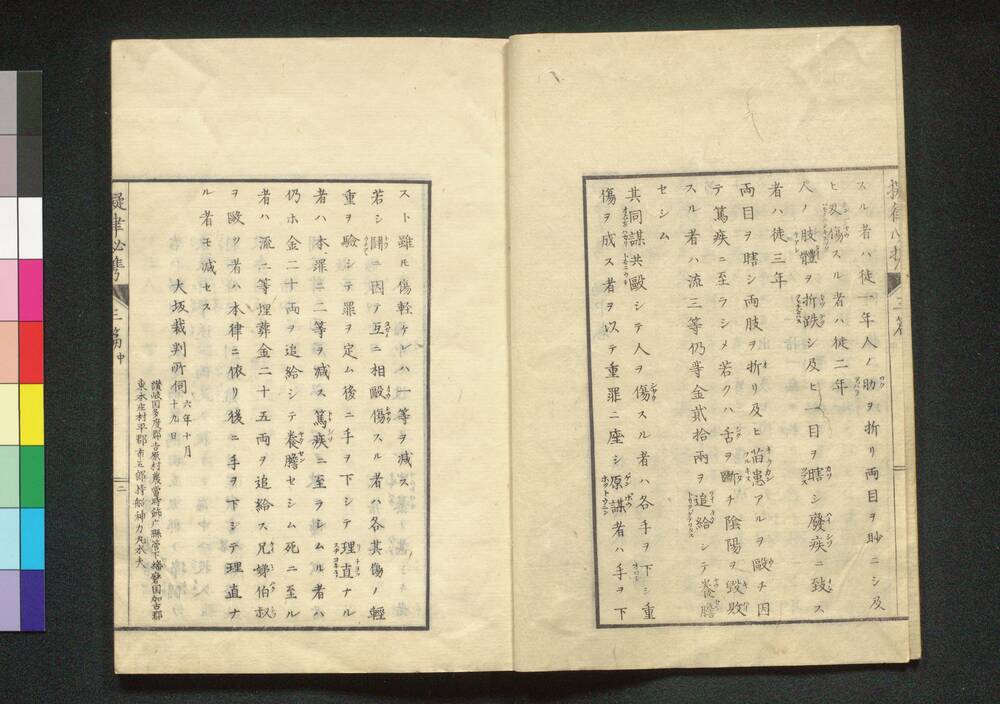 スル者ハ徒一年人ノ肋ヲ折リ両目ヲ眇ニシ及
ヒ刃傷スル者ハ徒二年
人ノ肢體ヲ折跌シ及ヒ一目ヲ瞎シ廢疾ニ致ス
者ハ徒三年
両目ヲ瞎シ両肢ヲ折リ及ヒ旧患アルヲ毆チ因
テ篤疾ニ至ラシメ若クハ舌ヲ断チ陰陽ヲ毀敗
スル者ハ流三等仍ホ金貳拾兩ヲ追給シテ養贍
セシム
其同謀共毆シテ人ヲ傷スル者ハ各手ヲ下シ重
傷ヲ成ス者ヲ以テ重罪ニ座シ原謀者ハ手ヲ下
スト雖モ傷軽ケレハ一等ヲ減ス
若シ鬪ニ因テ互ニ相毆傷スル者ハ各其傷ノ輕
重ヲ驗シテ罪ヲ定ム後ニ手ヲ下シテ理直ナル
者ハ本罪ニ二等ヲ減ス篤疾ニ至ラシムル者ハ
仍ホ金二十両ヲ追給シテ養贍セシム死ニ至ル
者ハ流二等埋葬金二十五両ヲ追給ス兄姉伯叔
ヲ毆ツ者ハ本律ニ依リ後ニ手ヲ下シテ理直ナ
ル者モ減セス
大坂裁判所伺
六年十月
十九日
讃岐国多度郡吉原村農當時飾广縣管下播磨国加古郡
東本庄村平郡市五郎持船神力丸水夫
擬律必携
三篇
中
二